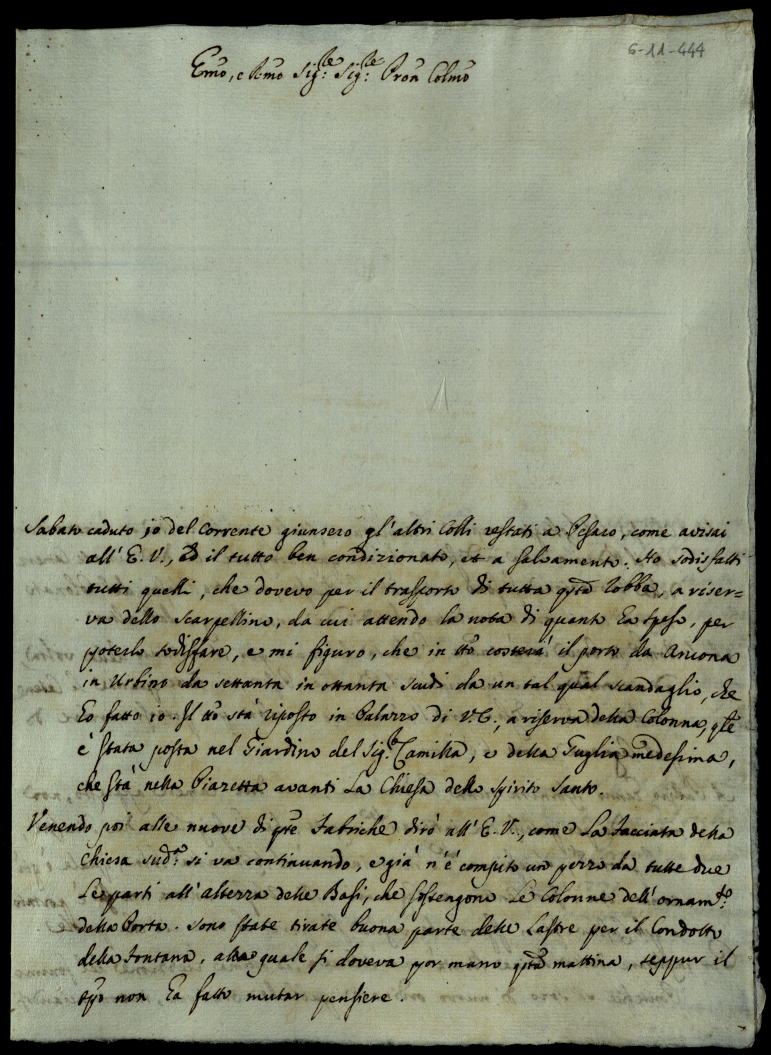 6-11-444
Emo, e Rmo Sig.re Sig.re Pron Colmo
Sabato caduto 10 del Corrente giunsero gl'altri Colli restati a Pesaro, come avisai
all'E. V., ed il tutto ben condizionato, et a salvamento. Ho sodisfatti
tutti quelli, che dovevo per il trasporto di tutta qsta robba, a riser=
va dello scarpellino, da cui attendo la nota di quanto ha speso, per
poterlo sodisfare, e mi figuro, che in tto costerà il porto da Ancona
in Urbino da settanta in ottanta scudi da un tal qual scandaglio, che
ho fatto io. Il tto stà riposto in Palazzo di V. E., a riserva della Colonna, qle
è stata posta nel Giardino del Sig.r Camilla, e della Guglia medesima,
che stà nella Piazetta avanti La Chiesa dello spirito santo.
Venendo poi alle nuove di qste Fabriche dirò all'E. V., come La facciata della
Chiesa sud.a si va continuando, e già n'è compito un pezzo da tutte due
Le parti all'altezza delle Basi, che sostengono Le Colonne dell'ornam.to
della Porta. Sono state tirate buona parte delle Lastre per il Condotto
della fontana, alla quale si doveva por mano qsta mattina, seppur il
tpo non ha fatto mutar pensiere.